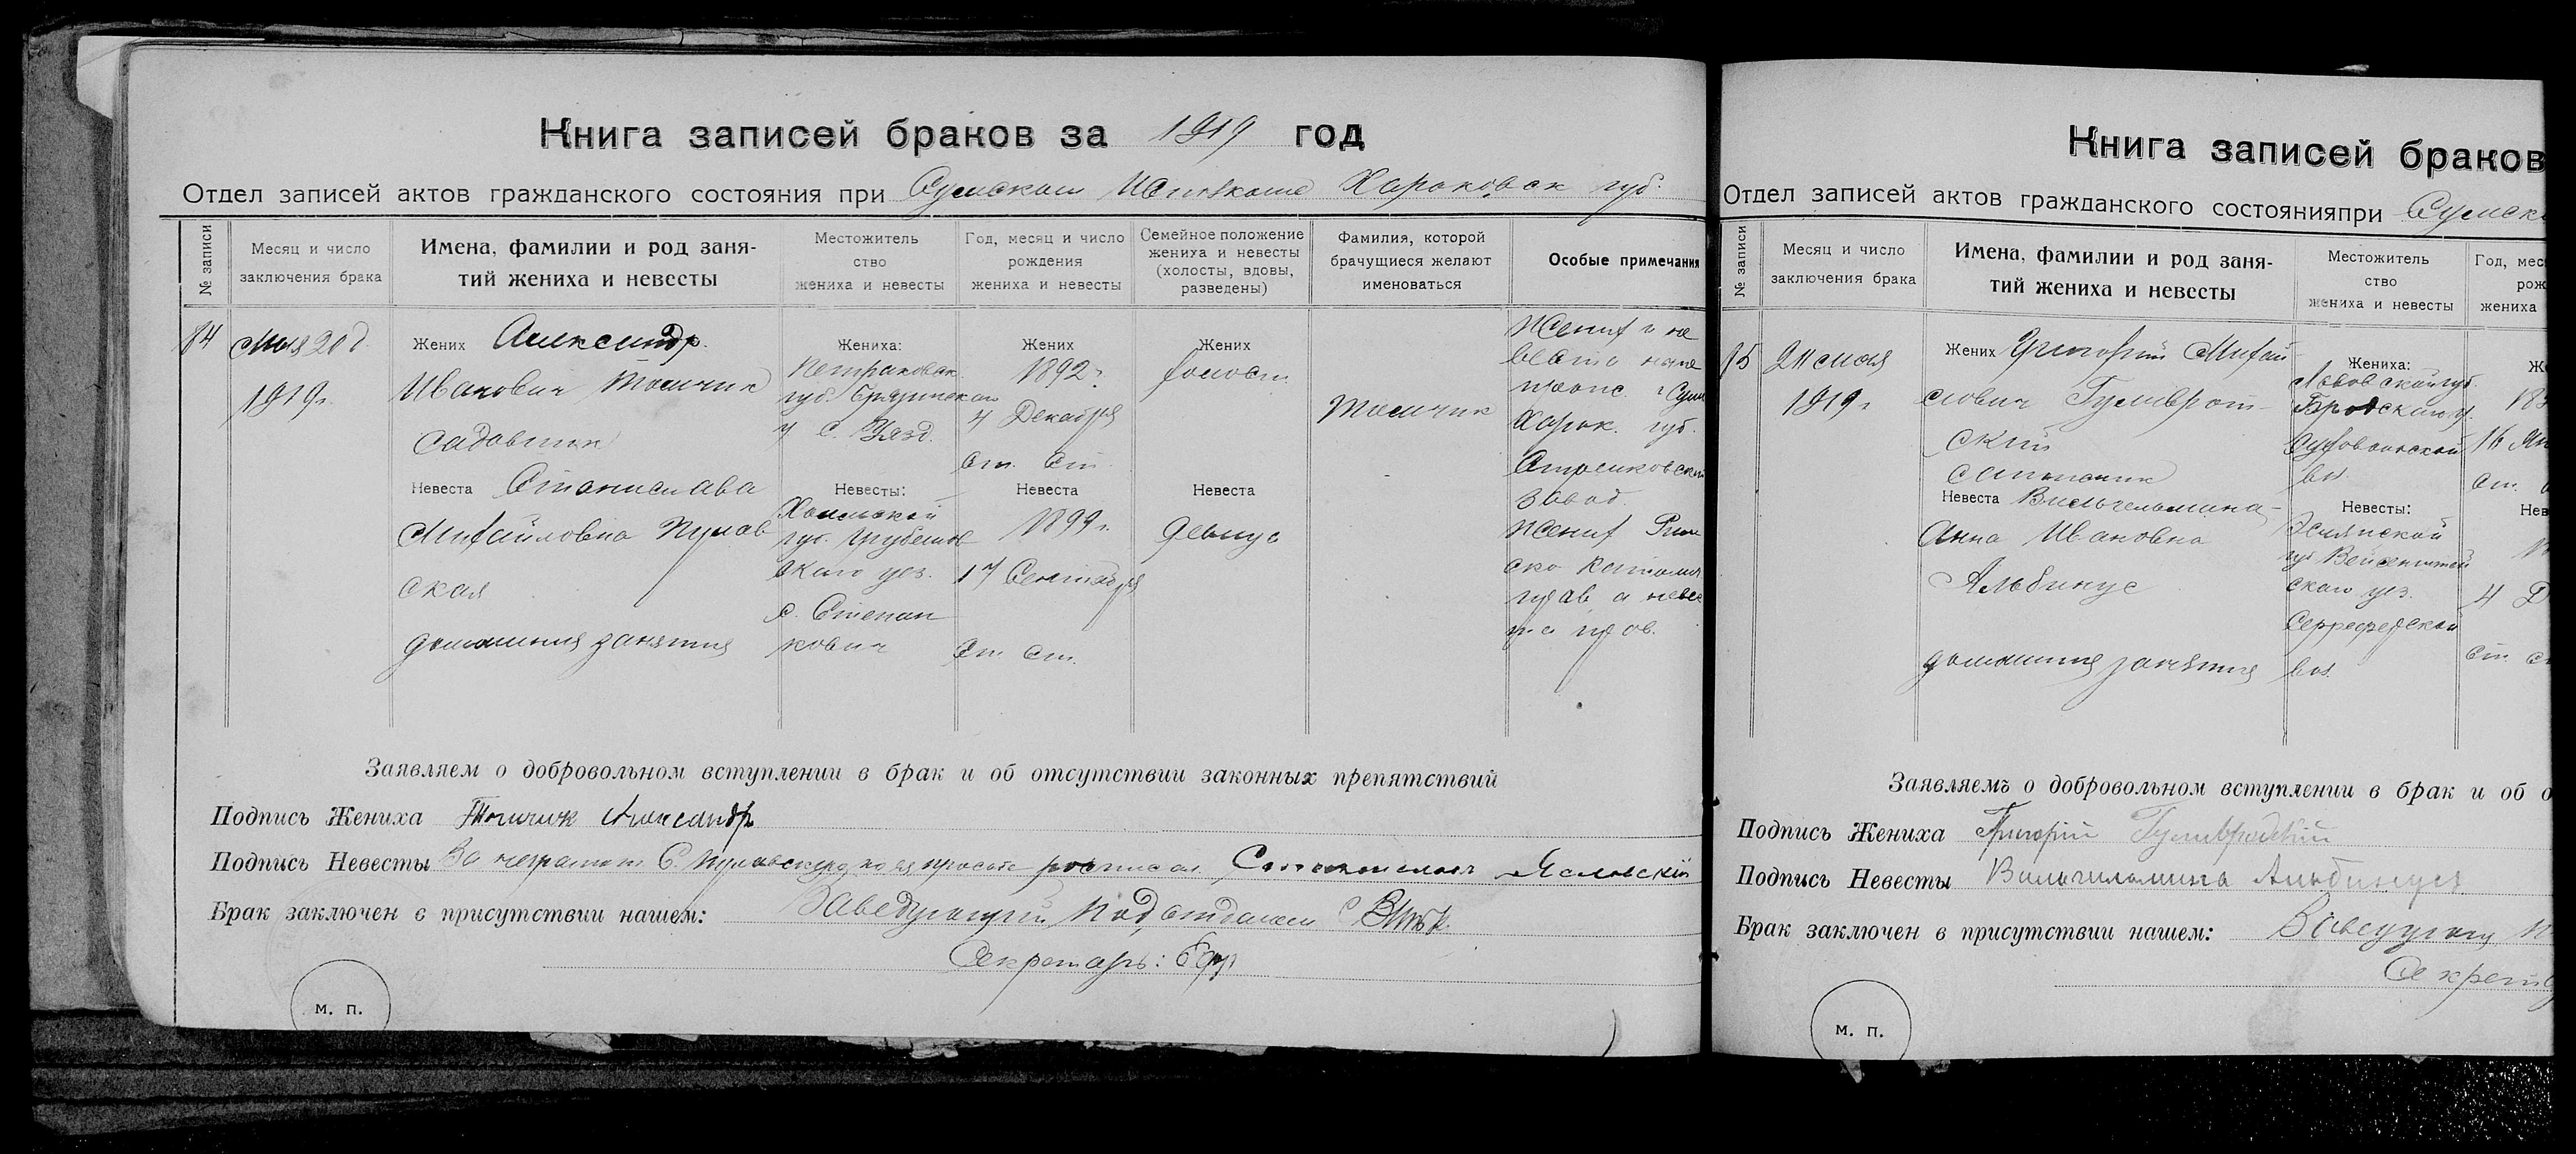 Книга записей браков за 1919 год
Отдел записей актов гражданского состояния при Сумском Исполкоме Харьковск губ.
№ записи
Месяц и число заключения брака
Имена, фамилии и род занятий жениха и невесты
Местожительство жениха и невесты
Год, месяц и число рождения жениха и невесты
Семейное положение жениха и невесты (холосты, вдовы, разведены)
Фамилия, которой брачущиеся желают именоваться
Особые примечания
84
Мая 20 д.
1919 г.
Жених Александр
Иванович Томчик
садовник
Невеста Станислава
Михайловна Пулав
ская
домашния занятия
Жениха:
Петраковск.
губ. Брезинскаго
у с. Уязд.
Невесты:
Холмской
губ. Грубешов
скаго уез.
с. Степан
кович
Жених
1892 г.
4 Декабря
Ст. Ст.
Невеста
1899 г.
17 Сентября
Ст. Ст.
Жених
холост
Невеста
девица
Томчик
Жених и не
веста
пропис. г Сум
Харьк. губ.
завод.
Жених Рим
ско Католич
прав, а невес
та прав.
Заявляем о добровольном вступлении в брак и об отсутствии законных препятствий
Подпись Жениха Томчик Александр
Подпись Невесты За неграмотн. С. Пулавскую по ея просьбе росписал Ясинскій
Брак заключен в присутствии нашем: Заведующий Подотделом
Секретарь:
м. п.
Книга записей браков
Отдел записей актов гражданского состоянияпри Сумск
№ записи
Месяц и число заключения брака
Имена, фамилии и род занятий жениха и невесты
Местожительство жениха и невесты
Год, мес
рож
жениха
85
21 мая
1919 г
Жених Григорий Михай
лович
ский
Невеста Вильгельмина-
Анна Ивановна
Альбинус
домашния занятия
Жениха:
Львовской губ.
Бродскаго у.
вол.
Невесты:
Эстляпской
губ Вейсенштей
скаго уез.
вол.
Же
16
Ст.
Нев
4 Д
Ст. Ст
Заявляемъ о добровольном вступлении в брак и об о
Подпись Жениха Григорій
Подпись Невесты Вильгильмина Альбинусъ
Брак заключен в присутствии нашем: Заведующ П
Секрет
м. п.